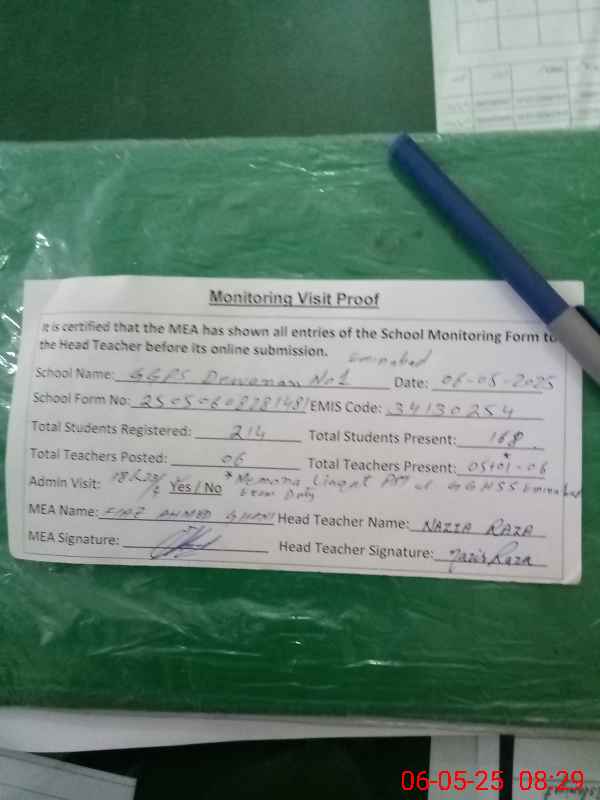 Monitoring Visit Proof
It is certified that the MEA has shown all entries of the School Monitoring Form to
the Head Teacher before its online submission.
School Name: GGPS Dewanan No1 Eminabad Date: 06-05-2025
School Form No: EMIS Code: 34130254
Total Students Registered: 214 Total Students Present: 168
Total Teachers Posted: 06 Total Teachers Present: 05+01*=06
Admin Visit: Yes / No * Memona Liaqat at GGHSS Eminabad
Exam Duty
MEA Name: AHMED GHANI Head Teacher Name: NAZIA RAZA
MEA Signature: Head Teacher Signature: Nazia Raza
06-05-25 08:29